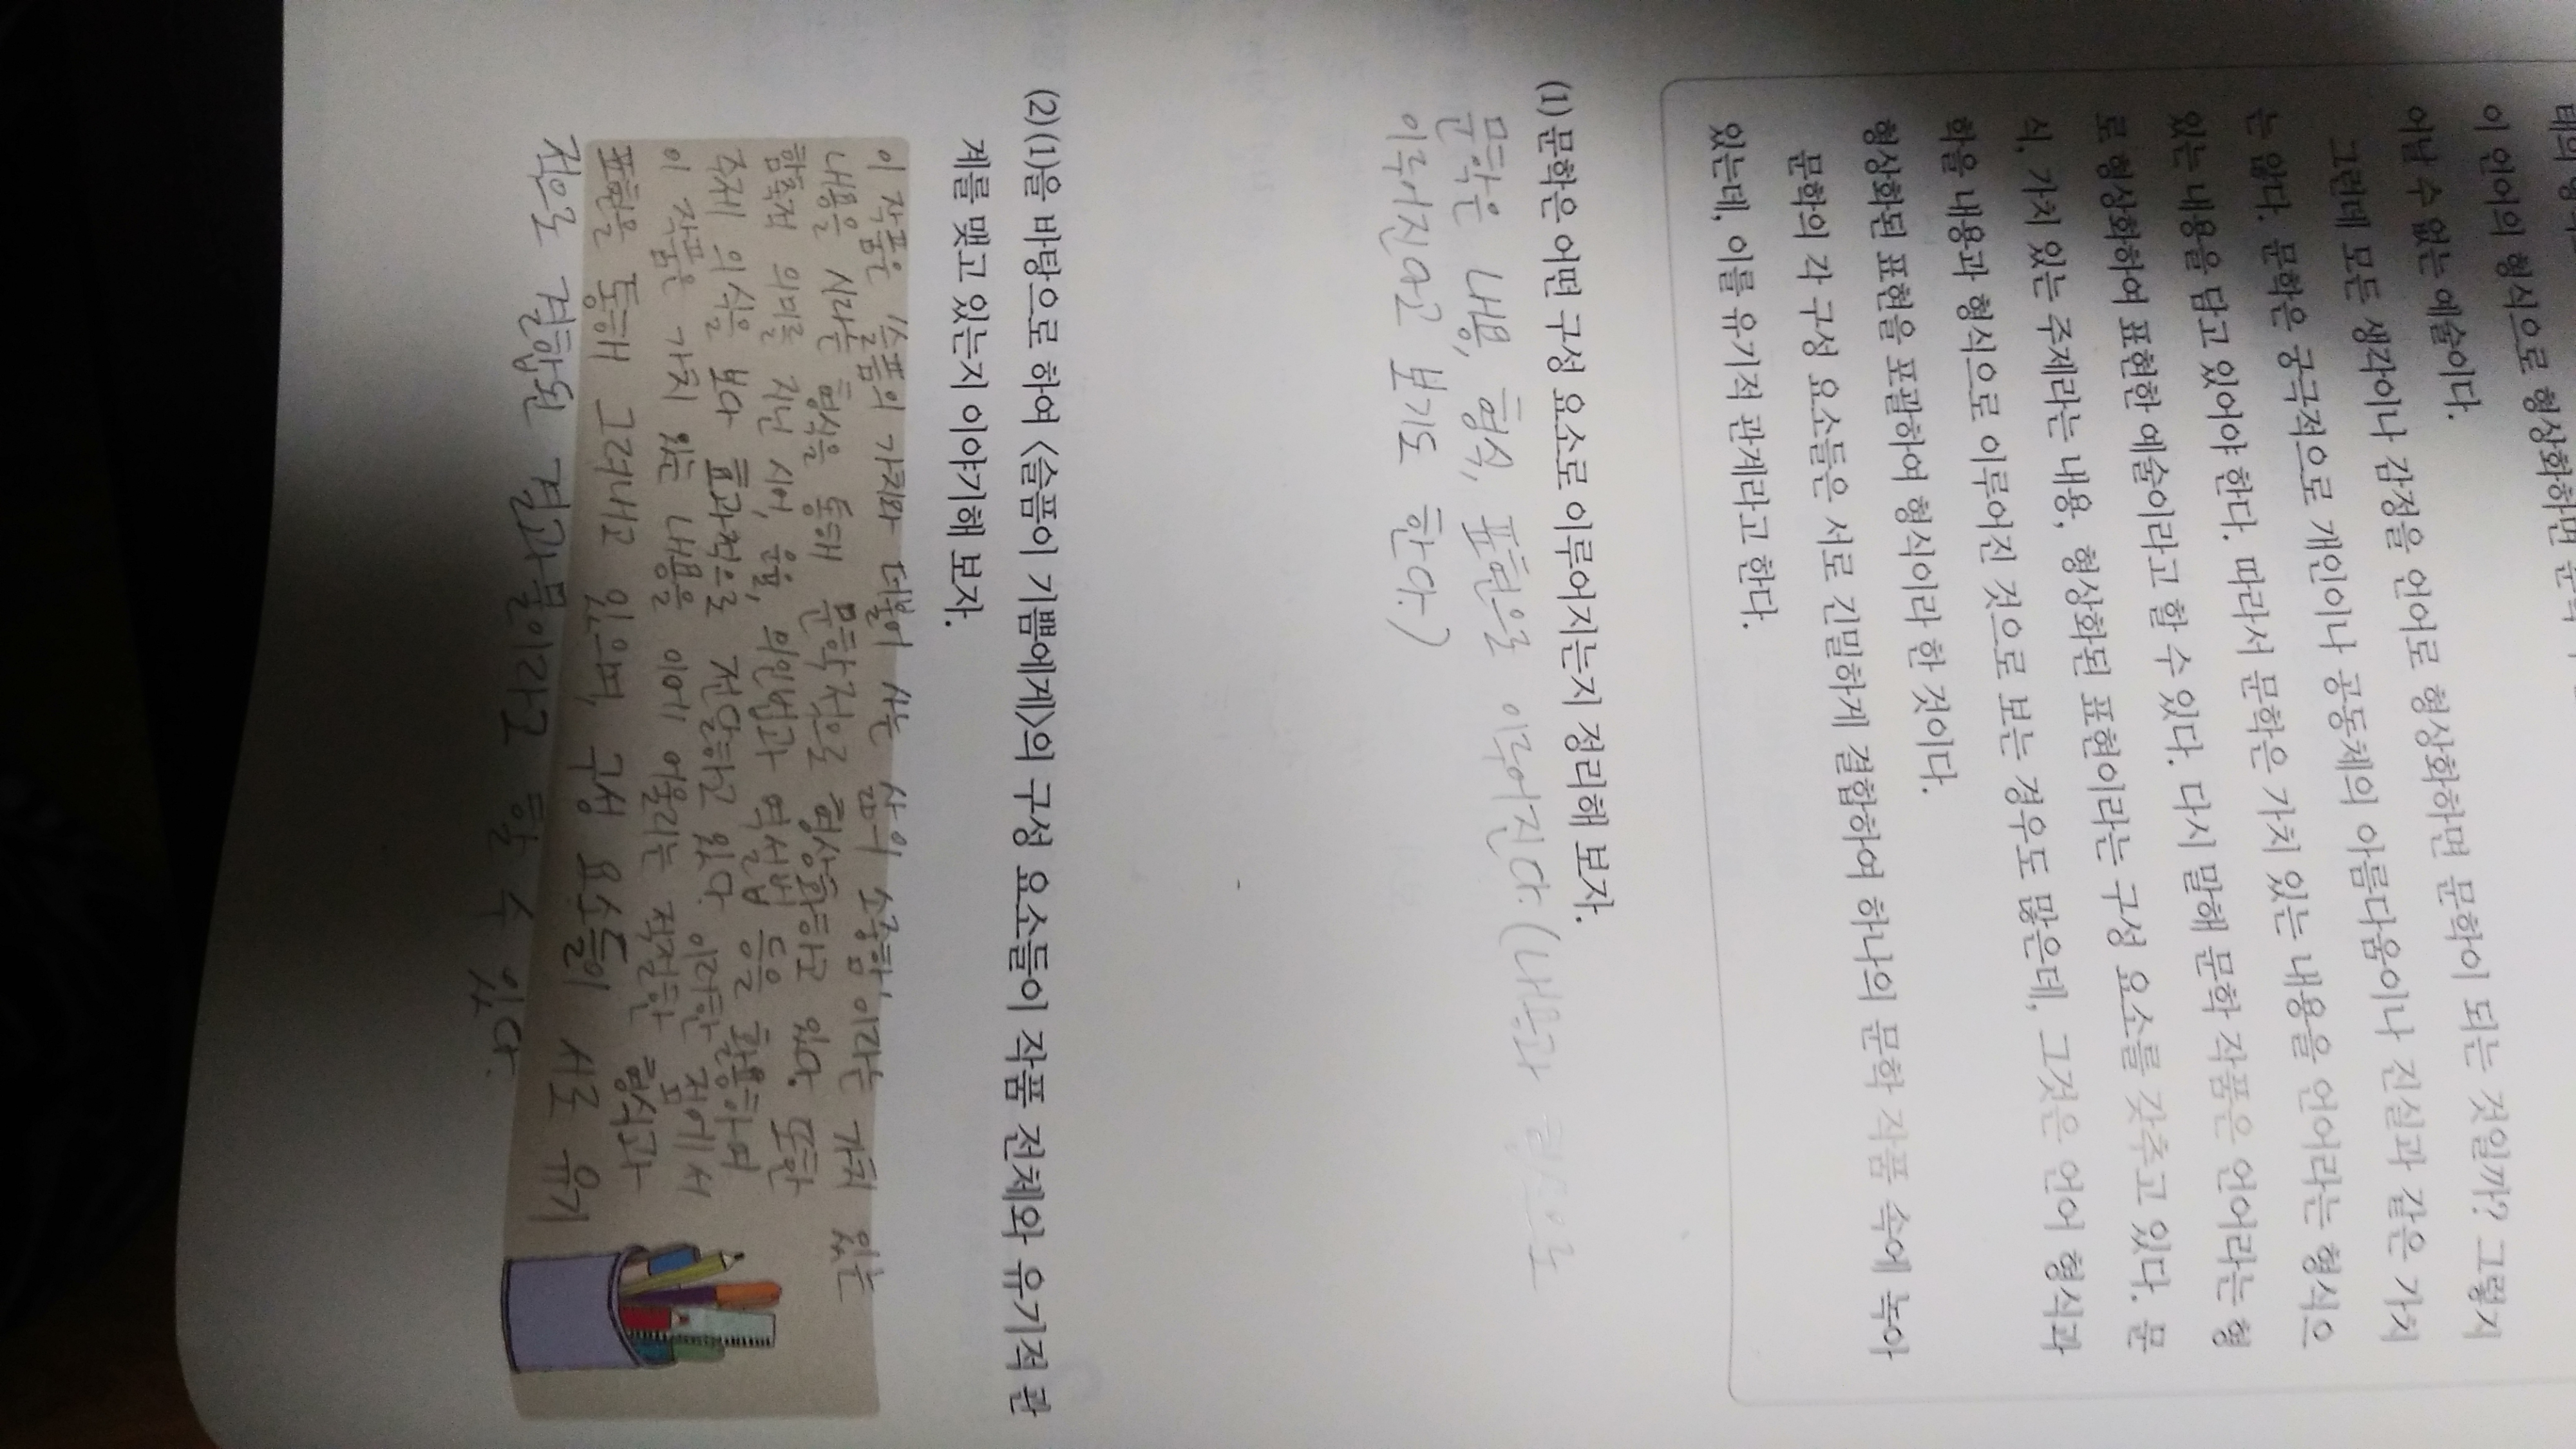 이 언어의 형식으로 형상화하면 문학이 되는 것일까? 그렇지
이 언어의 형식으로 형상화하면
어날 수 없는 예술이다.
그런데 모든 생각이나 감정을 언어로 형상화하면 문학이 되는 것일까? 그렇지
는 않다. 문학은 궁극적으로 개인이나 공동체의 아름다움이나 진실과 같은 가치
있는 내용을 담고 있어야 한다. 따라서 문학은 가치 있는 내용을 언어라는 형식으
로 형상화하여 표현한 예술이라고 할 수 있다. 다시 말해 문학 작품은 언어라는 형
식, 가치 있는 주제라는 내용, 형상화된 표현이라는 구성 요소를 갖추고 있다. 문
학을 내용과 형식으로 이루어진 것으로 보는 경우도 많은데, 그것은 언어 형식과
형상화된 표현을 포괄하여 형식이라 한 것이다.
문학의 각 구성 요소들은 서로 긴밀하게 결합하여 하나의 문학 작품 속에 녹아
있는데, 이를 유기적 관계라고 한다.
(1) 문학은 어떤 구성 요소로 이루어지는지 정리해 보자.
문학은 내용, 형식, 표현으로 이루어진다. (내용과 형식으로
이루어진다고 보기도 한다.)
(2) (1)을 바탕으로 하여 <슬픔이 기쁨에게>의 구성 요소들이 작품 전체와 유기적 관
계를 맺고 있는지 이야기해 보자.
이 작품은 '슬픔의 가치와 더불어 사는 삶의 소중함'이라는 가치 있는
내용을 시라는 형식을 통해 문학적으로 형상화하고 있다. 또한
함축적 의미를 지닌 시어, 운율, 의인법과 역설법 등을 활용하여
주제 의식을 보다 효과적으로 전달하고 있다. 이러한 점에서
이 작품은 가치 있는 내용을 이에 어울리는 적절한 형식과
표현을 통해 그려내고 있으며, 구성 요소들이 서로 유기
적으로 결합된 결과물이라고 할 수 있다.